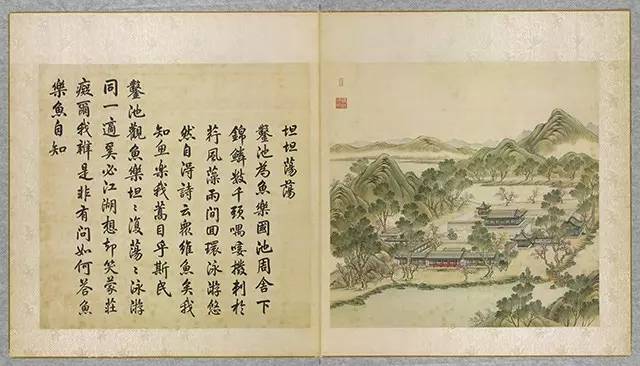 坦坦蕩蕩
鑿池為魚樂國池周舍下
錦鱗數千頭喁唼撥刺於
荇風藻雨間回環泳游悠
然自得詩云衆維魚矣我
知魚樂我蒿目乎斯民
鑿池觀魚樂坦〻復蕩〻泳游
同一適奚必江湖想却笑蒙莊
癡爾我辨是非有問如何答魚
樂魚自知